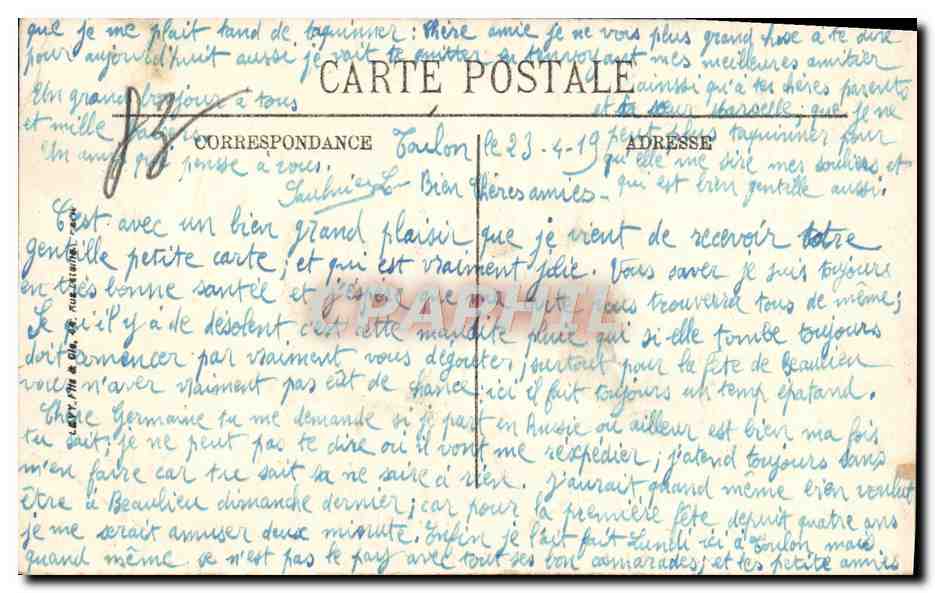 que je me plait tand de taquinner : Chère amie je ne vois plus grand hose a te dire
pour aujourd'huit aussi je vait te quitter en t'envoyant mes meilleures amitier
CARTE POSTALE
ainsi qu'a tes chères parents
Un grand bonjour a tous
et ta sœur Marselle, que je ne
et mille
peut plus taquinner pour
CORRESPONDANCE
ADRESSE
Toulon le 23-4-19
qu'elle me sire mes souliers et
Un ami qui pensse à vous.
qui est bien gentille aussi.
Bien Chères amies -
C'est avec un bien grand plaisir que je vient de recevoir votre
gentille petite carte, et qui est vraiment jolie. Vous saver je suis toujours
en très bonne santée et j'espère que ma carte vous trouverra tous de même ;
Se qu'il y à de désolent c'est cette maudite pluie qui si elle tombe toujours
doit comencer par vraiment vous dégouter, surtout pour la fête de Beaulieu
vous n'aver vraiment pas eût de chance ; ici il fait toujours un temp épatand.
Chère Germaine tu me demande si je part en Russie ou ailleur est bien ma fois
tu sait, je ne peut pas te dire où il vont me réexpédier ; j'atend toujours sans
m'en faire car tu sait sa ne saire à rien. J'aurait quand même bien voulut
être à Beaulieu dimanche dernier ; car pour la première fête depuit quatre ans
je me serait amuser deux minute. Enfin je l'ait fait Lundi ici à Toulon mais
quand même ce n'est pas le pay avec tout ses bon camarades, et les petite amies
LEVY Fils & Cie,
CPAPHIL